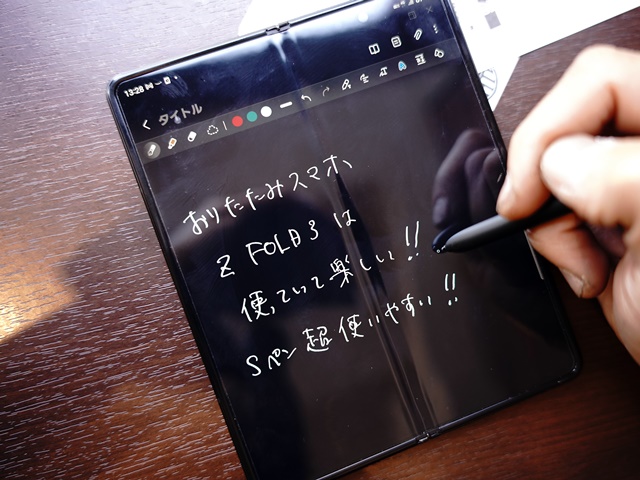 13:28
タイトル
おりたたみスマホ、
Z FOLD3 は
使っていて楽しい!!
Sペン 超 使いやすい!!